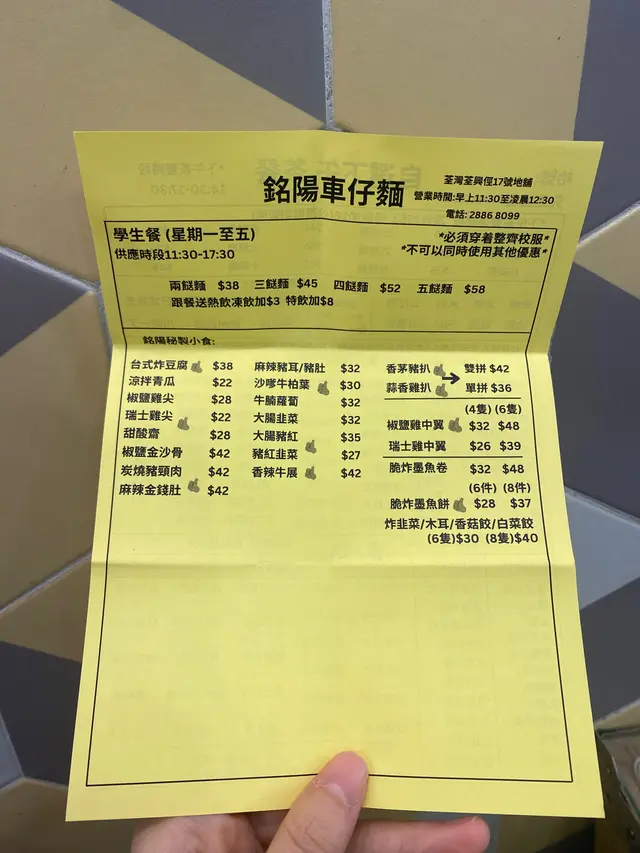 銘陽車仔麵
荃灣荃興徑17號地舖
營業時間:早上11:30至凌晨12:30
電話: 2886 8099
學生餐 (星期一至五)
供應時段11:30-17:30
*必須穿着整齊校服*
*不可以同時使用其他優惠*
兩餸麵 $38 三餸麵 $45 四餸麵 $52 五餸麵 $58
跟餐送熱飲凍飲加$3 特飲加$8
銘陽秘製小食:
台式炸豆腐 $38
涼拌青瓜 $22
椒鹽雞尖 $28
瑞士雞尖 $22
甜酸齋 $28
椒鹽金沙骨 $42
炭燒豬頸肉 $42
麻辣金錢肚 $42
麻辣豬耳/豬肚 $32
沙嗲牛柏葉 $30
牛腩蘿蔔 $32
大腸韭菜 $32
大腸豬紅 $35
豬紅韭菜 $27
香辣牛展 $42
香茅豬扒 雙拼 $42
蒜香雞扒 單拼 $36
(4隻) (6隻)
椒鹽雞中翼 $32 $48
瑞士雞中翼 $26 $39
脆炸墨魚卷 $32 $48
(6件) (8件)
脆炸墨魚餅 $28 $37
炸韭菜/木耳/香菇餃/白菜餃
(6隻)$30 (8隻)$40